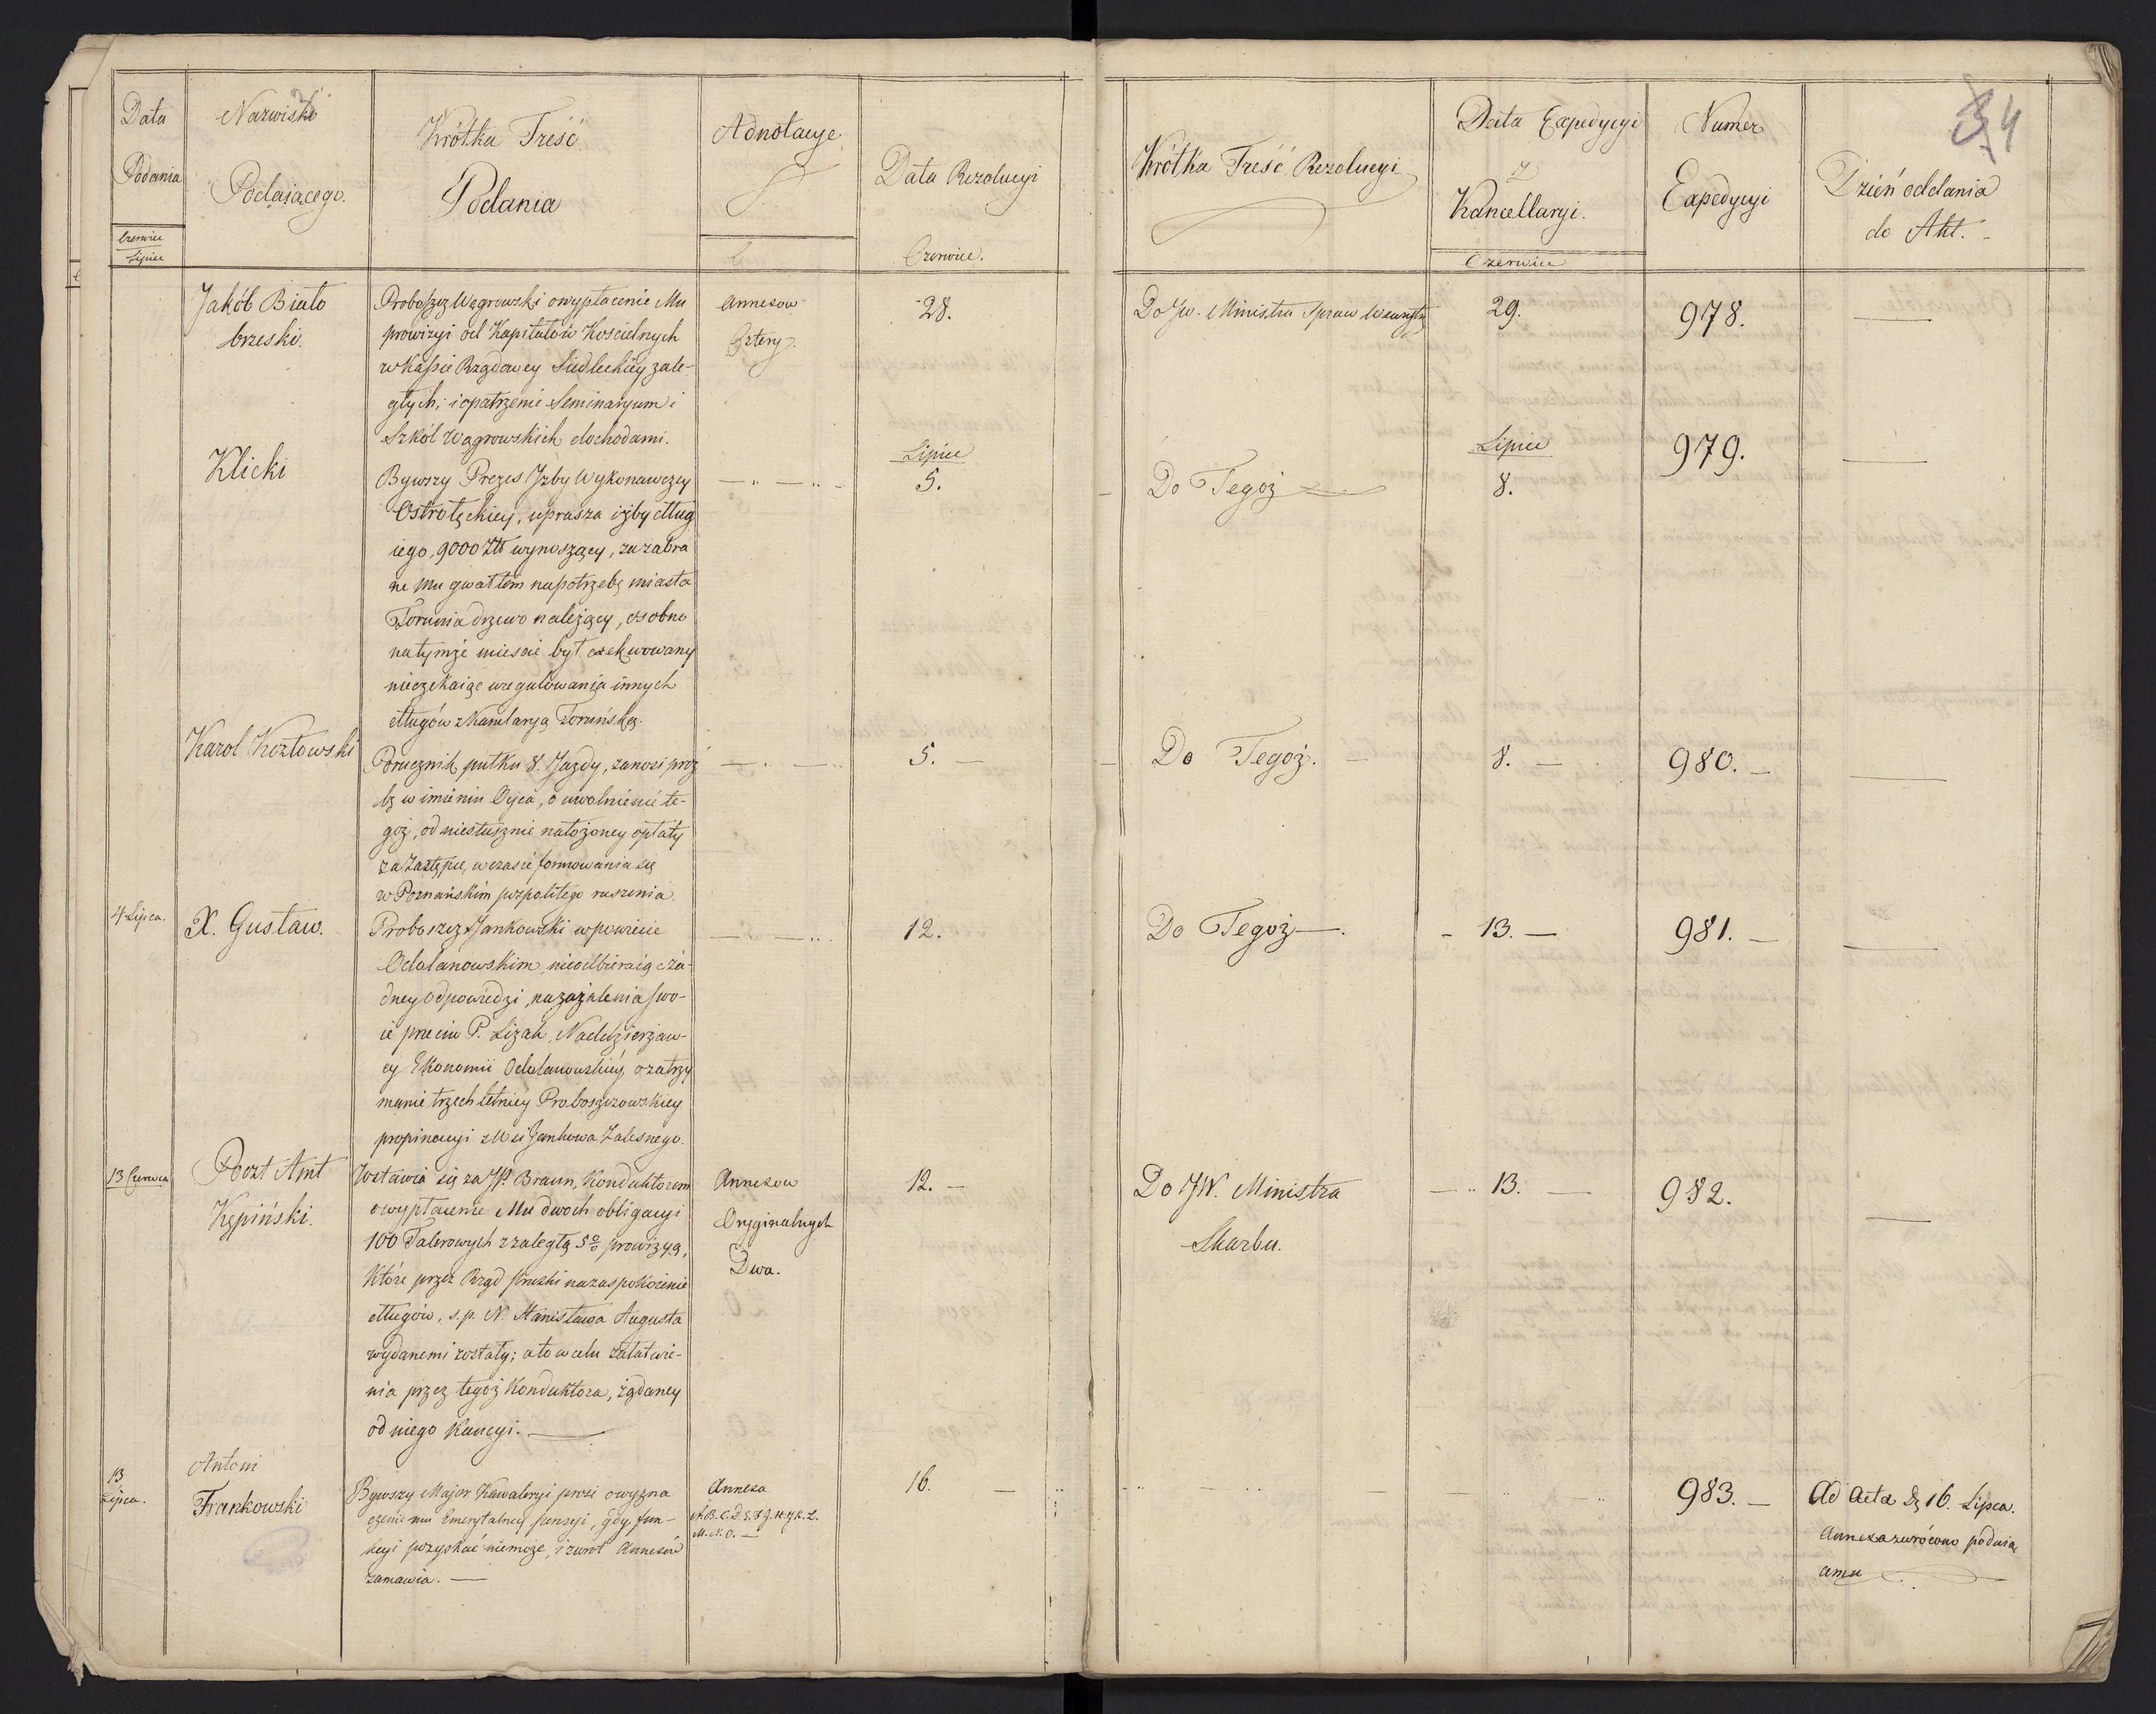 Data
Podania
Czerwiec
Lipiec
Nazwisko
Podaiącego.
Krótka Treść
Podania
Adnotacye.
Data Rezolucyi
Czerwiec.
Krótka Treść Rezolucyi
Data Expedycyi
z
Kancellaryi.
Czerwiec
Numer
Expedycyi
34
Dzień oddania
do Akt. -
Jakób Biało
brzeski.
Proboszcz Węgrowski o wypłacenie Mu
prowizyi od Kapitałów Kościelnych
w Kassie Rządowey Siedleckiey zale-
głych; i opatrzenie Seminaryum i
Szkół Węgrowskich dochodami.
Annexow
Cztery.
28.
Do Jw. Ministra Spraw Wewnętr
29.
978.
Klicki
Bywszy Prezes Jzby Wykonawczey
Ostrołęckiey, uprasza iżby dług
iego, 9000 Złt wynoszący, za zabra
ne Mu gwałtem na potrzebę miasta
Torunia drzewo należący, osobno
na tymże mieście był exekwowany
nieczekaiąc uregulowania innych
długów z Kamlaryą Toruńską.
Lipiec
5.
Do Tegoż
Lipiec
8.
979.
Karol Kozłowski
Porucznik pułku 8. Jazdy, zanosi proź
bę w imieniu Oyca, o uwolnienie te-
goż, od niesłusznie nałożoney opłaty
za Zastępcę, w czasie formowania się
w Poznańskim pospolitego ruszenia.
5. -
Do Tegoż. -
8. -
980. -
4 Lipca.
X. Gustaw.
Proboszcz Jankowski w powiecie
Odolanowskim, nieodbieraiąc ża-
dney odpowiedzi, na zażalenia swo-
ie przeciw P. Lizak, Naddzierżaw-
cy Ekonomii Odolanowskiey o zatrzy
manie trzechletniey Proboszczowskiey
propinacyi z Wsi Jankowa Zalesnego.
12.
Do Tegoż -.
- 13. -
981. -
13 Czerwca
Poczt Amt
Kępiński.
Wstawia się za JP. Braun, Konduktorem
o wypłacenie Mu dwoch obligacyi
100 Talerowych z zaległą 5% prowizyą,
Które przez Rząd pruski na zaspokoienie
długów, s. p. N. Stanisława Augusta
wydanemi zostały; a to w celu załatwie-
nia przez tegoż Konduktora, żądaney
od niego Kaucyi. -
Annexow
Oryginalnych
Dwa.
12. -
Do JW. Ministra
Skarbu.
13. -
982.
13
Lipca.
Antoni
Frankowski
Bywszy Major Kawaleryi prosi o wyzna
czenie mu Emerytalney pensyi, gdy fun-
kcyi pozyskać niemoże, i zwrot Annexów
zamawia. -
Annexa
A. B. C. D. E. F. G. H. J. K. L.
M. N. O. -
16. -
983. -
Ad Acta Dz 16. Lipca.
Annexa zwrócono podaią
cemu